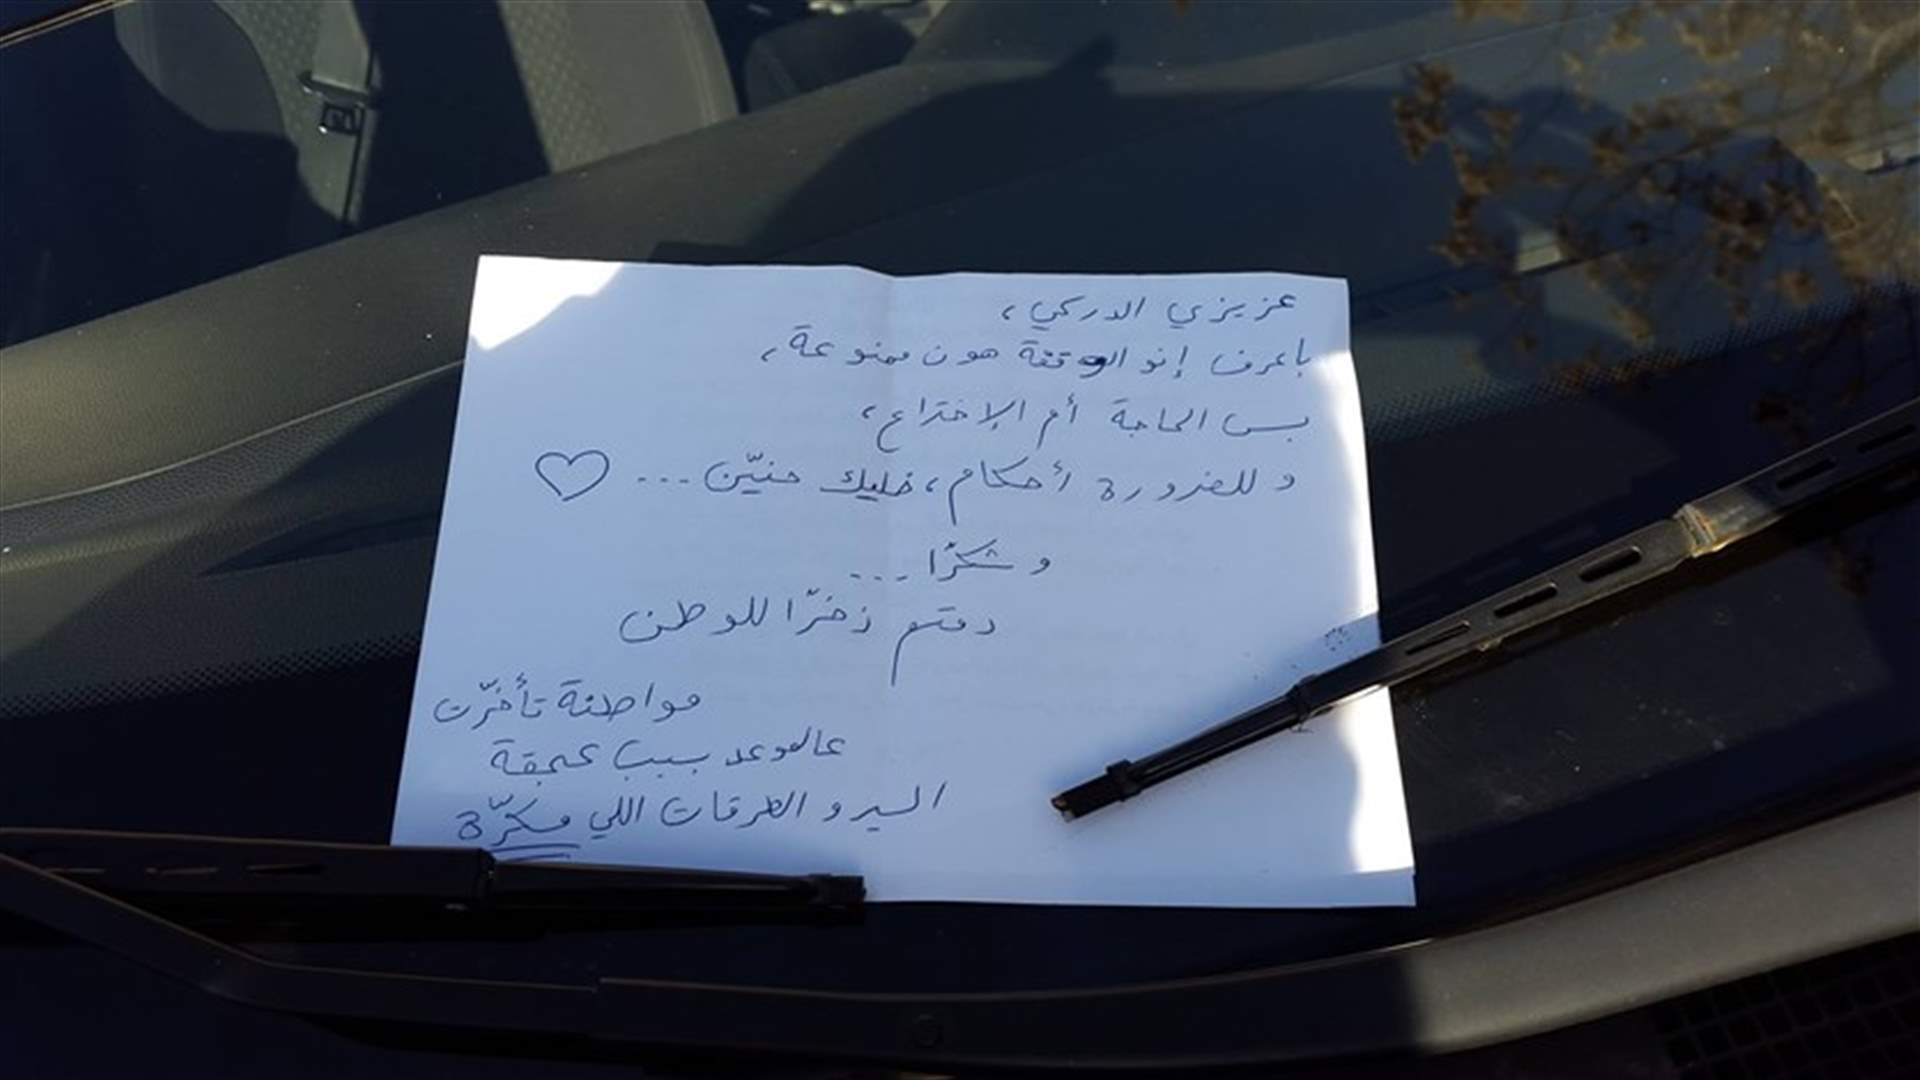 عزيزي الدركي،
باعرف إنو الوقفة هون ممنوعة،
بس الحاجة أم الإختراع،
وللضرورة أحكام، خليك حنيّن...
وشكرًا...
دمتم ذخرًا للوطن
مواطنة تأخّرت
عالموعد بسبب عجقة
السير والطرقات اللي مسكّرة